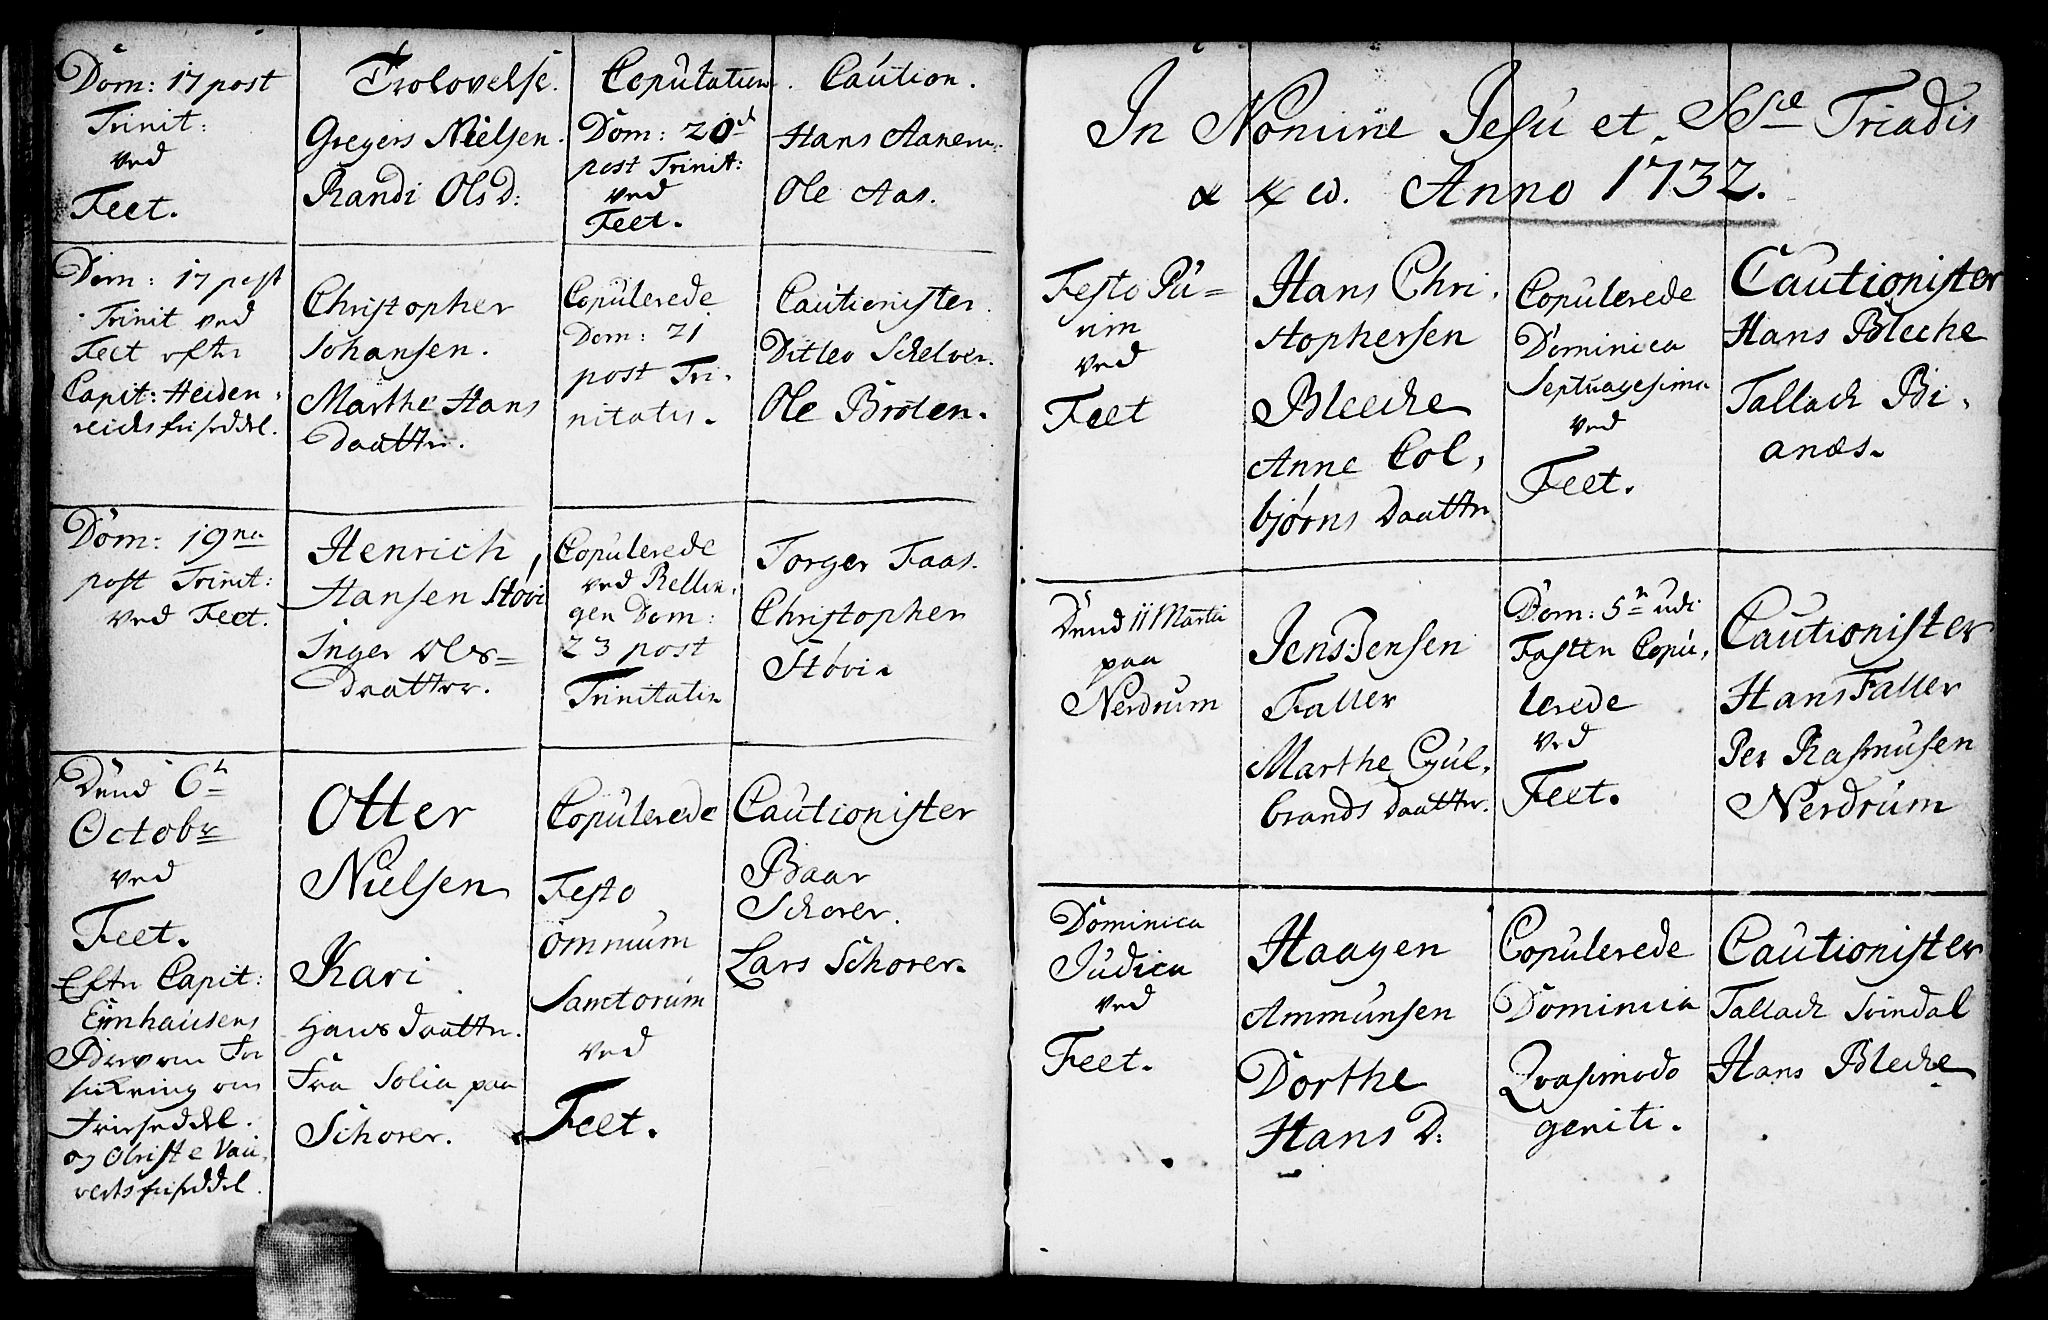 Dom: 17 post
Trinit:
ved
Feet.
Trolovelse.
Gregers Nielsen.
Randi Olsd:
Copulation.
Dom: 20d
post Trinit:
ved
Feet.
Caution.
Hans Aaneru.
Ole Aas.
Dom: 17 post
Trinit ved
Feet efter
Capit: Heiden,
reichs friseddel.
Christopher
Johansen.
Marthe Hans
Daatter.
Copulerede
Dom: 21
post Tri,
nitatis.
Cautionister
Ditlev Schelver.
Ole Bröten.
Dom: 19na
post Trinit:
ved Feet.
Henrich,
Hansen Støvi
Inger Ols=
Daatter.
Copulerede
ved Rellin,
gen Dom:
23 post
Trinitatis
Torger Faas.
Christopher
Støvi
Dend 6te
Octobr
ved
Feet.
Efter Capit:
Einhausens
Brev om For
sikring om
Friseddel.
og Obriste
friseddel.
Otter
Nielsen
Kari
Hans daatter.
Fra Solia paa
Schorer.
Copulerede
Festo
omnium
Sanctorum
ved
Feet.
Cautionister
Baar
Schorer.
Lars Schorer.
In Nomine Jesu et SSæ Triadis
α & ω. Anno 1732.
Festo Pu=
rim
ved
Feet
Hans Chri,
stophersen
Bleeche
Anne Col,
bjørns Daatter
Copulerede
Dominica
Septuagesima
ved
Feet.
Cautionister
Hans Bleche
Tallach Bi,
anæs.
Dend 11 Martii
paa
Nerdrum
Jens Jensen
Faller
Marthe Gul,
brands Daatter.
Dom: 5te udi
Fasten Copu,
lerede
ved
Feet.
Cautionister
Hans Faller
Per Rasmusen
Nerdrum
Dominica
Judica
ved
Feet.
Haagen
Ammunsen
Dorthe
Hans D:
Copulerede
Dominica
Qvasimodo
geniti.
Cautionister
Tallach Svindal
Hans Bleche